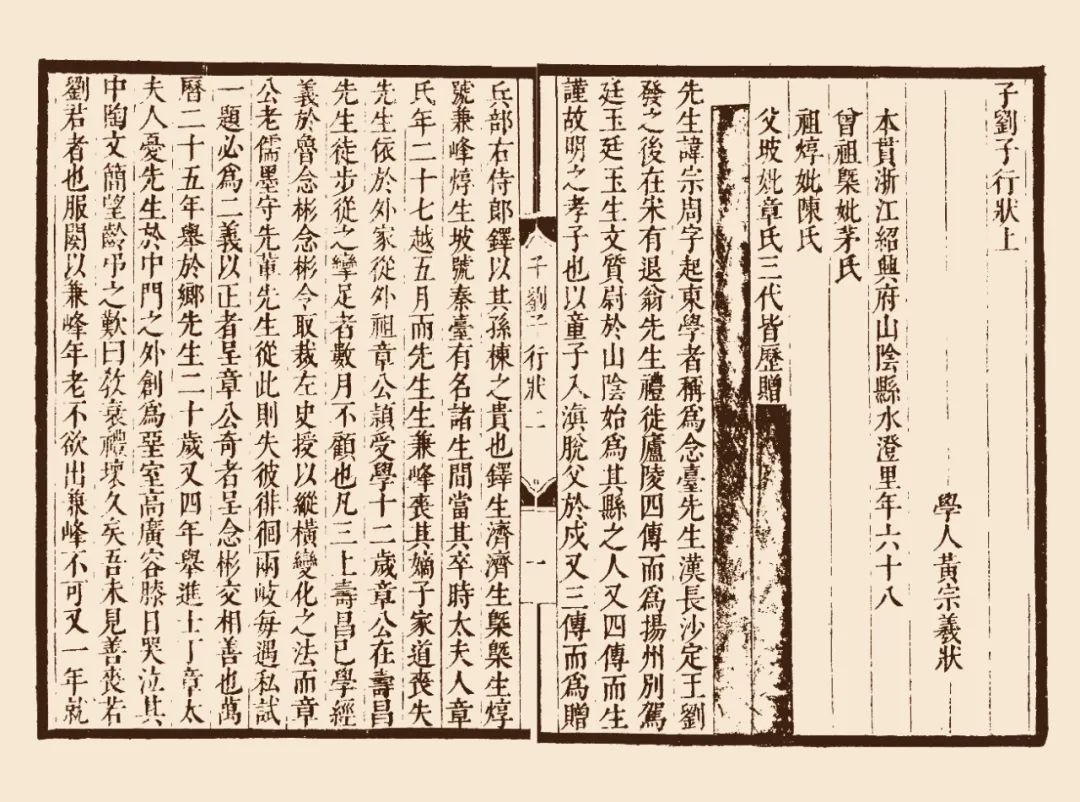 子劉子行狀上
學人黃宗羲狀
本貫浙江紹興府山陰縣水澄里年六十八
曾祖槩妣茅氏
祖焞妣陳氏
父坡妣章氏三代皆歷贈
先生諱宗周字起東學者稱爲念臺先生漢長沙定王劉
發之後在宋有退翁先生禮徙廬陵四傳而爲揚州別駕
廷玉廷玉生文質尉於山陰始爲其縣之人又四傳而生
謹故明之孝子也以童子入滇脫父於戍又三傳而爲贈
子劉子行狀
一
兵部右侍郎鐸以其孫棟之貴也鐸生濟濟生槩槩生焞
號兼峰焞生坡號秦臺有名諸生間當其卒時太夫人章
氏年二十七越五月而先生生兼峰喪其嫡子家道喪失
先生依於外家從外祖章公頴受學十二歲章公在壽昌
先生徒步從之攣足者數月不顧也凡三上壽昌已學經
義於魯念彬念彬令取裁左史授以縱橫變化之法而章
公老儒墨守先軰先生從此則失彼徘徊兩岐每遇私試
一題必爲二義以正者呈章公奇者呈念彬交相善也萬
曆二十五年舉於鄉先生二十歲又四年舉進士丁章太
夫人憂先生於中門之外創爲堊室高廣容膝日哭泣其
中陶文簡望齡弔之歎曰敎衰禮壞久矣吾未見善喪若
劉君者也服闋以兼峰年老不欲出兼峰不可又一年就